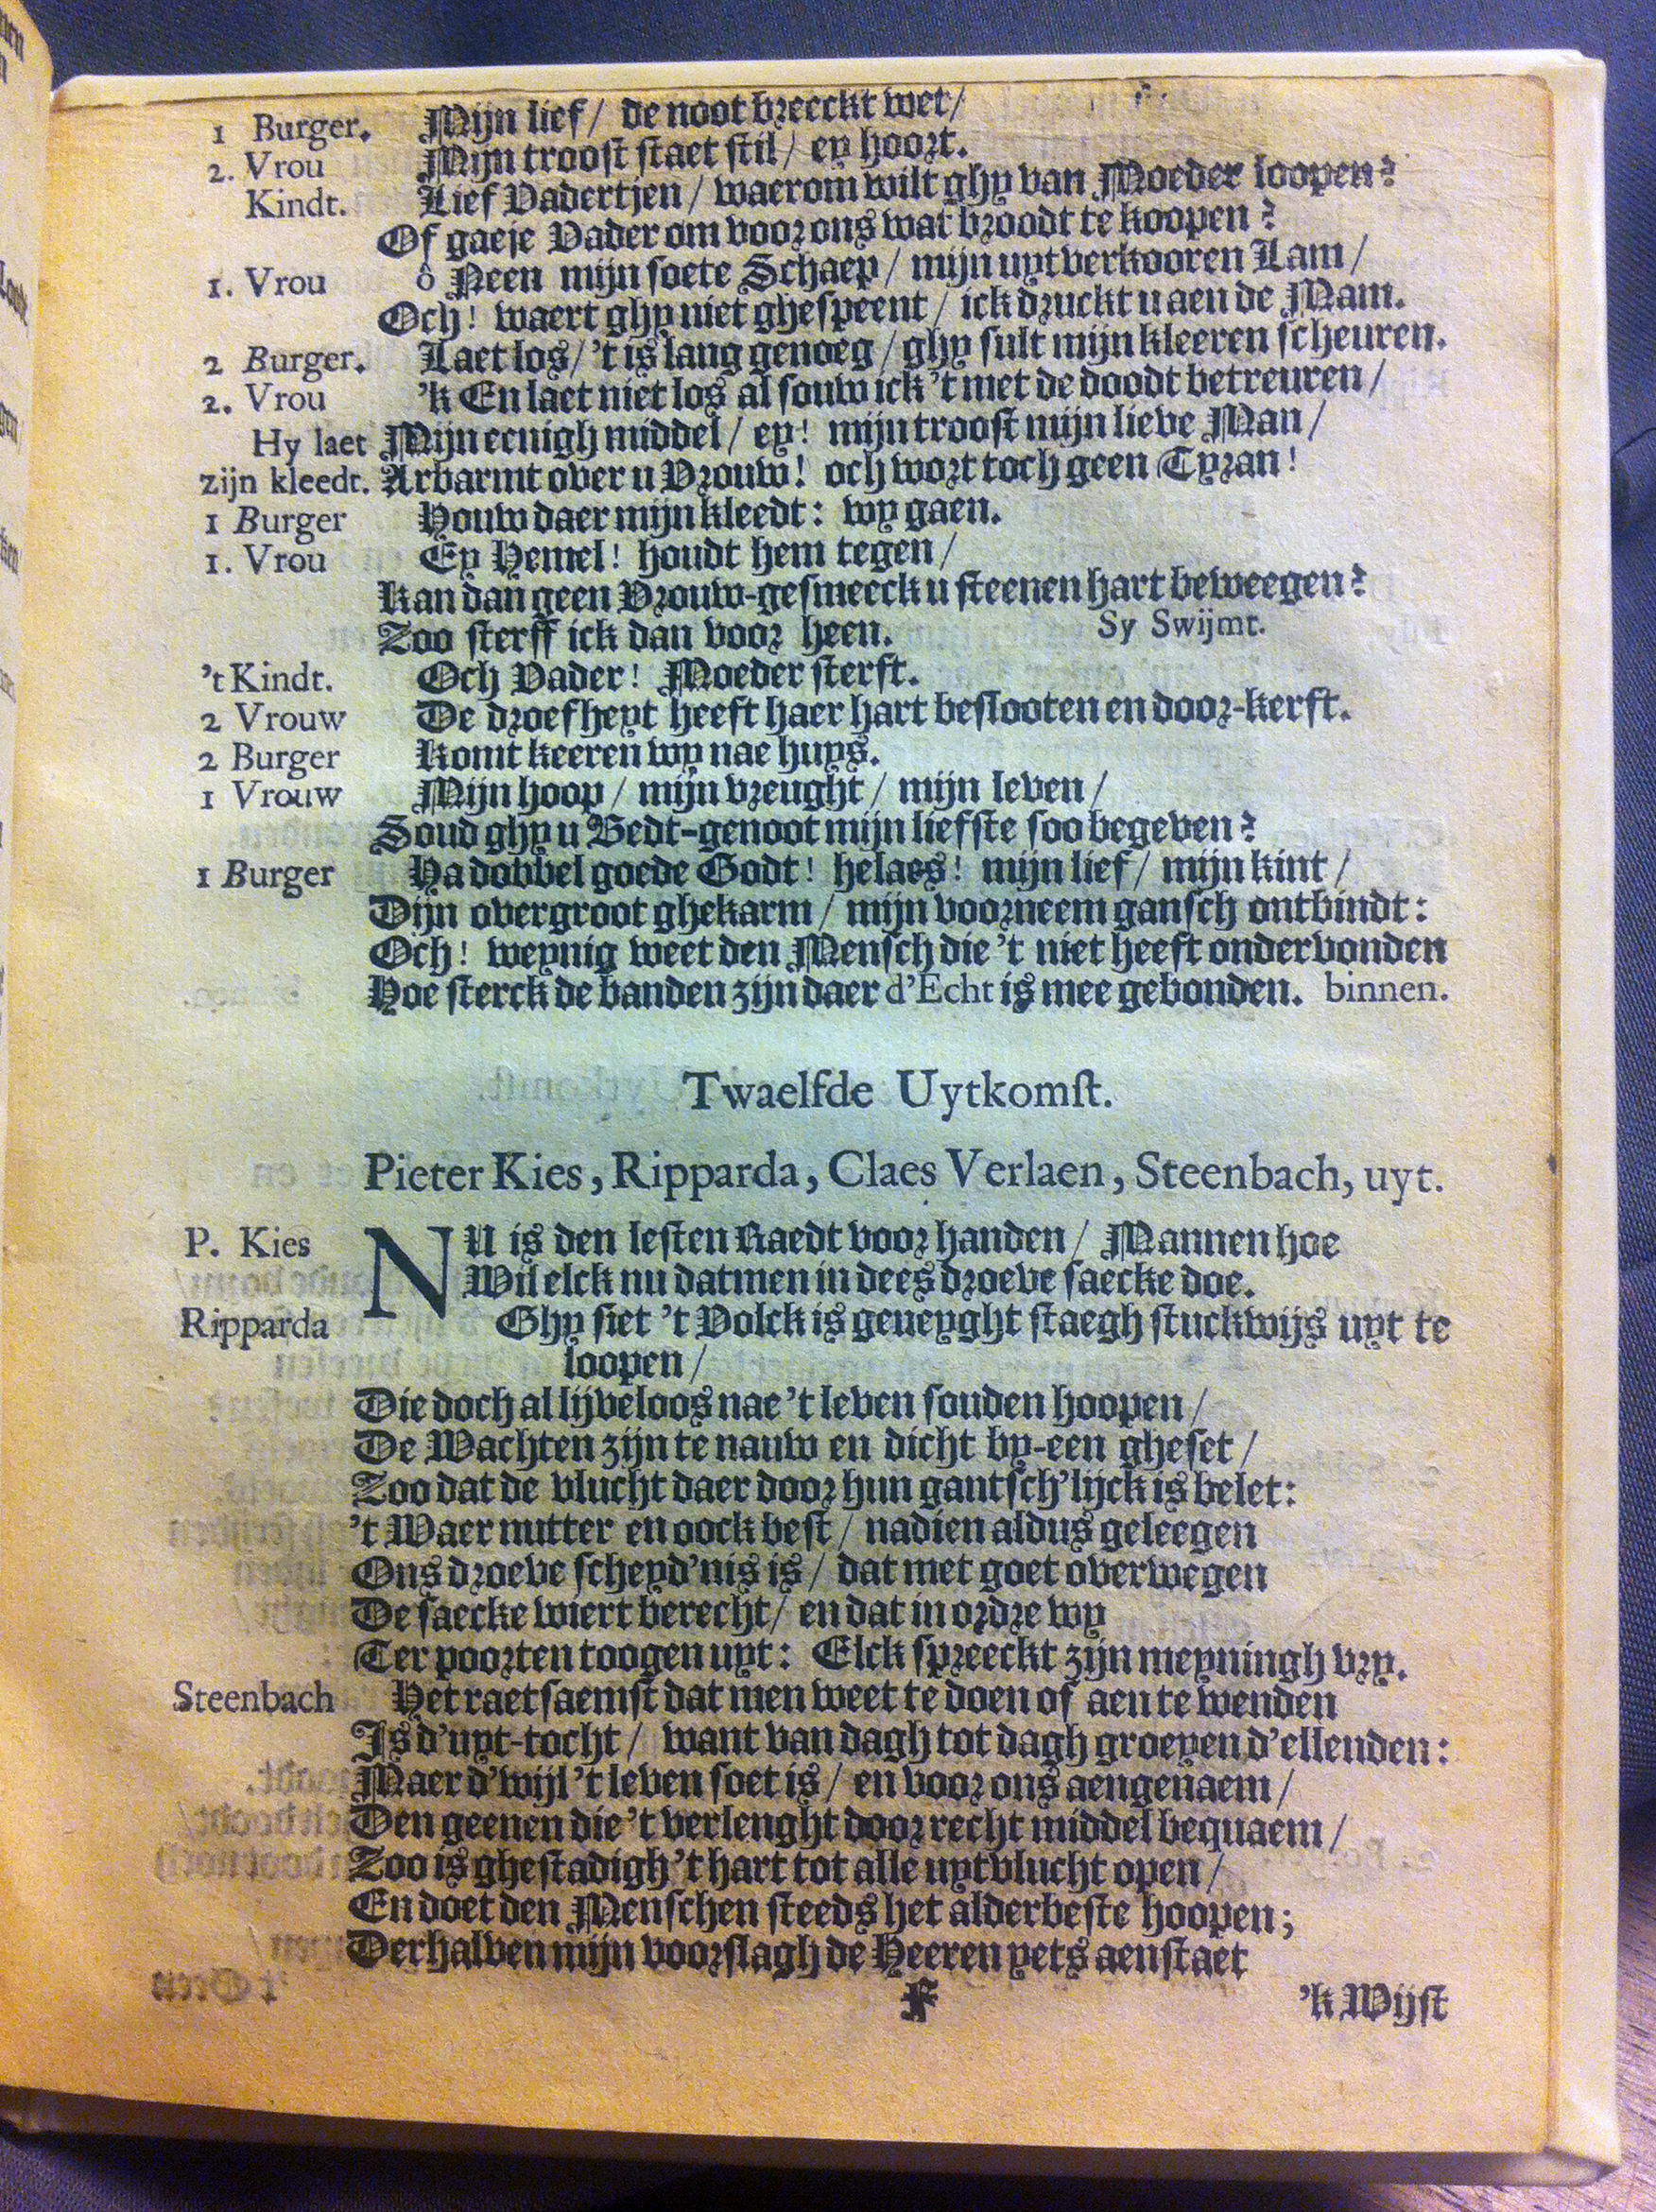 1 Burger. Mijn lief / de noot breeckt wet /
2. Vrou Mijn troost staet stil / ey hoort.
Kindt. Lief Vadertjen / waerom wilt ghy van Moeder loopen?
Of gaeje Vader om voor ons wat broodt te koopen?
1. Vrou ô Neen mijn soete Schaep / mijn uytverkooren Lam /
Och! waert ghy niet ghespeent / ick druckt u aen de Mam.
2 Burger. Laet los / 't is lang genoeg / ghy sult mijn kleeren scheuren.
2. Vrou 'k En laet niet los al souw ick 't met de doodt betreuren /
Hy laet Mijn eenigh middel / ey! mijn troost mijn lieve Man /
zijn kleedt. Arbarmt over u Vrouw! och wort toch geen Tyran!
1 Burger Houw daer mijn kleedt: wy gaen.
1. Vrou Ey Hemel! houdt hem tegen /
Kan dan geen Vrouw-gesmeeck u steenen hart beweegen?
Zoo sterff ick dan voor heen. Sy Swijmt.
't Kindt. Och Vader! Moeder sterft.
2 Vrouw De droefheyt heeft haer hart beslooten en door-kerft.
2 Burger Komt keeren wy nae huys.
1 Vrouw Mijn hoop / mijn vreught / mijn leven /
Soud ghy u Bedt-genoot mijn liefste soo begeven?
1 Burger Ha dobbel goede Godt! helaes! mijn lief / mijn kint /
Dijn overgroot ghekarm / mijn voorneem gansch ontbindt:
Och! weynig weet den Mensch die 't niet heeft ondervonden
Hoe sterck de banden zijn daer d'Echt is mee gebonden. binnen.
Twaelfde Uytkomst.
Pieter Kies, Ripparda, Claes Verlaen, Steenbach, uyt.
P. Kies NU is den lesten Raedt voor handen / Mannen hoe
Wil elck nu datmen in dees droeve saecke doe.
Ripparda Ghy siet 't Volck is geneyght staegh stuckwijs uyt te
loopen /
Die doch al lijveloos nae 't leven souden hoopen /
De Wachten zijn te nauw en dicht by-een gheset /
Zoo dat de vlucht daer door hun gantsch'lijck is belet:
't Waer nutter en oock best / nadien aldus geleegen
Ons droeve scheyd'nis is / dat met goet overwegen
De saecke wiert berecht / en dat in ordre wy
Ter poorten toogen uyt: Elck spreeckt zijn meyningh vry.
Steenbach Het raetsaemst dat men weet te doen of aen te wenden
Is d'uyt-tocht / want van dagh tot dagh groeyen d'ellenden:
Maer d'wijl 't leven soet is / en voor ons aengenaem /
Den geenen die 't verlenght door recht middel bequaem /
Zoo is ghestadigh 't hart tot alle uytvlucht open /
En doet den Menschen steeds het alderbeste hoopen;
Derhalven mijn voorslagh de Heeren yets aenstaet
F 'k Wijst